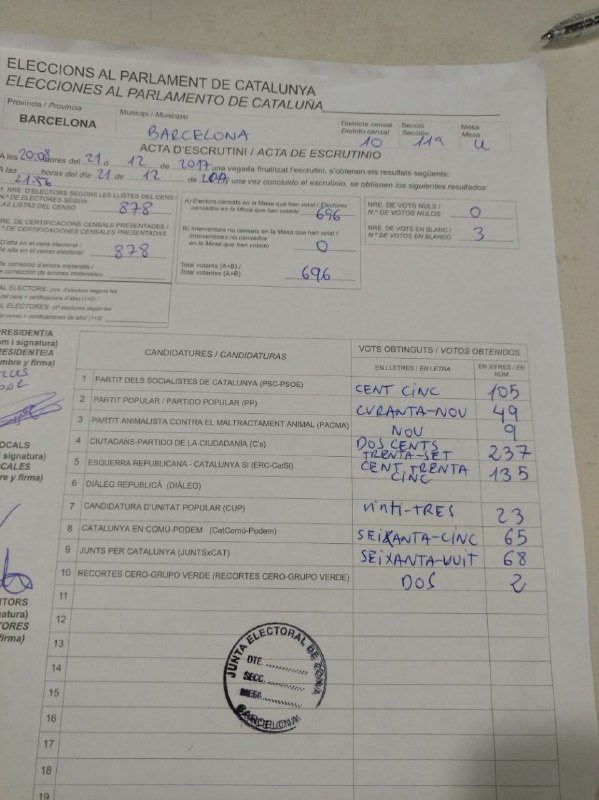 ELECCIONS AL PARLAMENT DE CATALUNYA
ELECCIONES AL PARLAMENTO DE CATALUÑA
Província / Provincia
BARCELONA
Municipi / Municipio
BARCELONA
Districte censal
Distrito censal
10
Secció
Sección
119
Mesa
Mesa
U
ACTA D'ESCRUTINI / ACTA DE ESCRUTINIO
A les 20:08 hores del 21 d 12 de 2017 una vegada finalitzat l'escrutini, s'obtenen els resultats següents:
A las 21:56 horas del día 21 de 12 de 2017 una vez concluido el escrutinio, se obtienen los siguientes resultados:
1. NRE. D'ELECTORS SEGONS LES LLISTES DEL CENS /
N.º DE ELECTORES SEGÚN
LAS LISTAS DEL CENSO
878
NRE. DE CERTIFICACIONS CENSALS PRESENTADES /
N.º DE CERTIFICACIONES CENSALES PRESENTADAS
D'alta en el cens electoral /
de alta en el censo electoral:
878
De correcció d'errors materials /
corrección de errores materiales:
AL ELECTORS: (nre. d'electors segons les
del cens + certificacions d'alta) (1+2) /
AL ELECTORES: (nº electores según las
el censo + certificaciones de alta) (1+2)
A) Electors censats en la Mesa que han votat / Electores
censados en la Mesa que han votado
696
B) Interventors no censats en la Mesa que han votat /
Interventores no censados
en la Mesa que han votado
0
Total votants (A+B) /
Total votantes (A+B)
696
NRE. DE VOTS NULS /
N.º DE VOTOS NULOS
0
NRE. DE VOTS EN BLANC /
N.º DE VOTOS EN BLANCO
3
PRESIDENT/A
om i signatura)
PRESIDENTE/A
mbre y firma)
OCALS
i signatura)
OCALES
re y firma)
NTORS
natura)
TORES
firma)
CANDIDATURES / CANDIDATURAS
VOTS OBTINGUTS / VOTOS OBTENIDOS
EN LLETRES / EN LETRA
EN XIFRES / EN NÚM.
1 PARTIT DELS SOCIALISTES DE CATALUNYA (PSC-PSOE) CENT CINC 105
2 PARTIT POPULAR / PARTIDO POPULAR (PP) CURANTA-NOU 49
3 PARTIT ANIMALISTA CONTRA EL MALTRACTAMENT ANIMAL (PACMA) NOU 9
4 CIUTADANS-PARTIDO DE LA CIUDADANÍA (C's) DOS CENTS TRENTA-SET 237
5 ESQUERRA REPUBLICANA - CATALUNYA SI (ERC-CatSI) CENT TRENTA CINC 135
6 DIÀLEG REPUBLICÀ (DIÀLEG)
7 CANDIDATURA D'UNITAT POPULAR (CUP) VINTI-TRES 23
8 CATALUNYA EN COMÚ-PODEM (CatComú-Podem) SEIXANTA-CINC 65
9 JUNTS PER CATALUNYA (JUNTSxCAT) SEIXANTA-VUIT 68
10 RECORTES CERO-GRUPO VERDE (RECORTES CERO-GRUPO VERDE) DOS 2
11
12
13
14
15
16
17
18
19
JUNTA ELECTORAL DE ZONA
DTE.
SECC.
MESA
BARCELONA